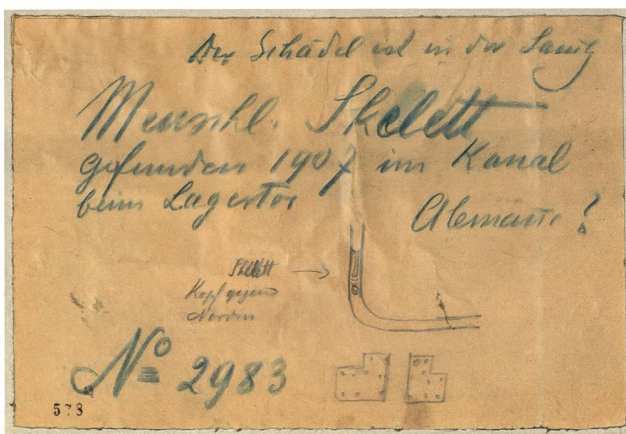 Der Schädel ist in der Samlg
Menschl. Skelett
gefunden 1907 im Kanal
beim Lagertor
Alemanne?
Skelett
Kopf gegen
Norden
No 2983
578